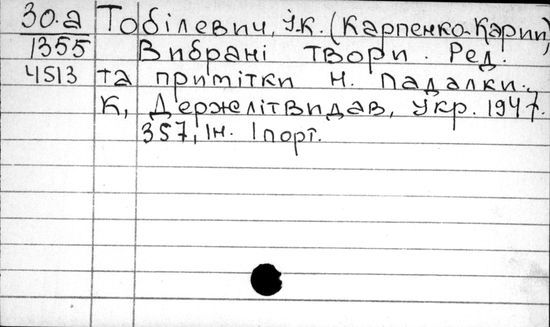 30.а Тобілевич, І.К. (Карпенко-Карий)
1355 Вибрані твори. Ред.
4513 та примітки Н. Падалки.
К, Держлітвидав, Укр. 1947.
357, Ін. 1 порт.